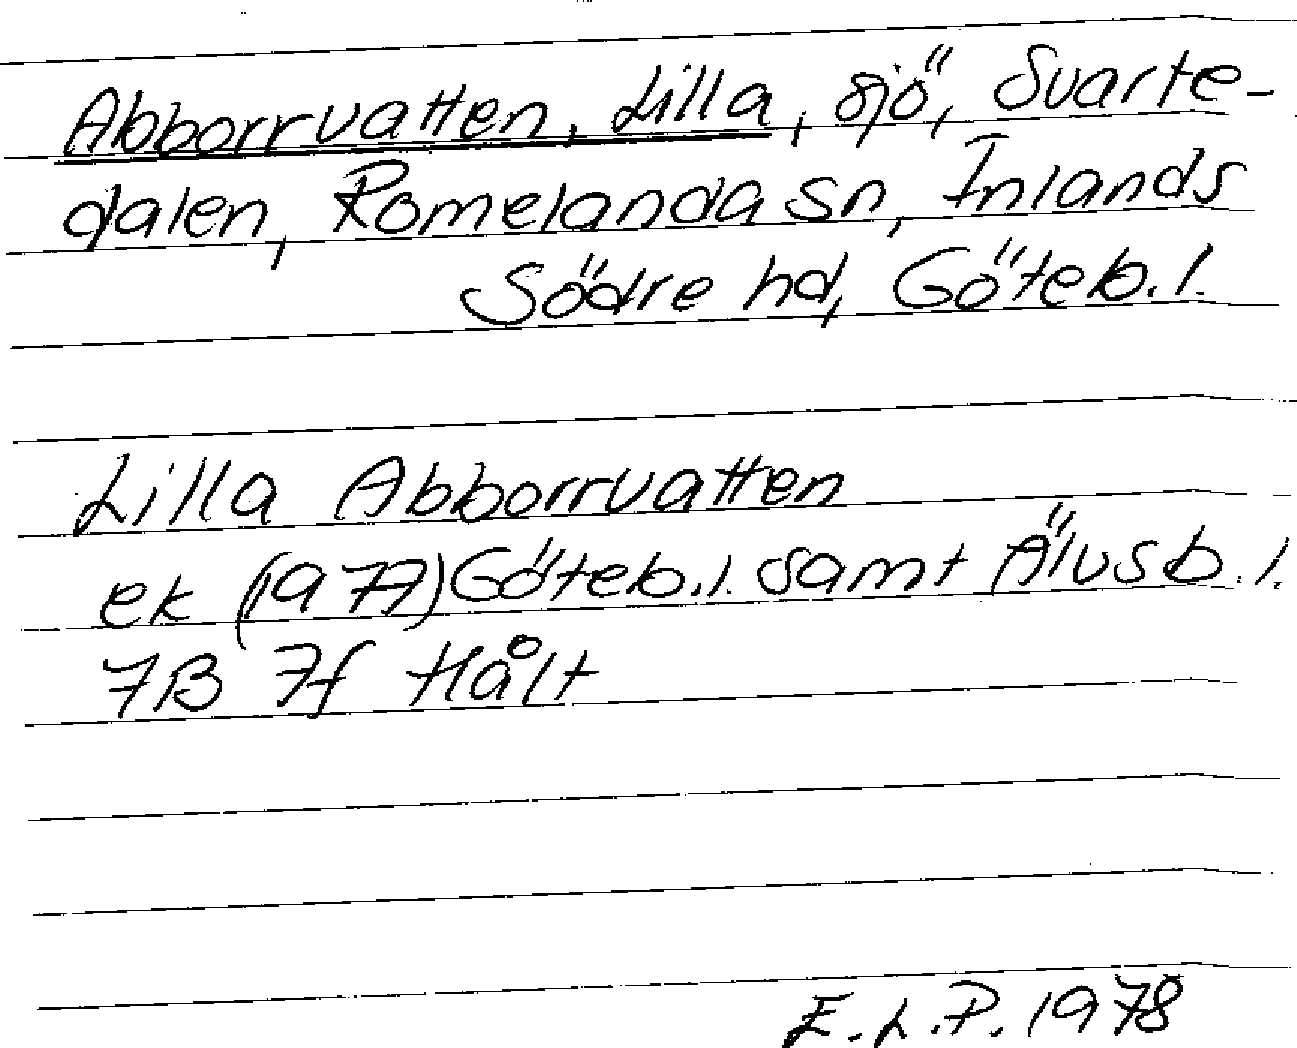 Abborrvatten, Lilla, sjö, Svarte-
dalen, Romelanda sn, Inlands
Södre hd, Göteb. l.
Lilla Abborrvatten
ek (1977) Göteb. l. samt Älvsb. l.
7B 7f Hålt
E. L. P. 1978